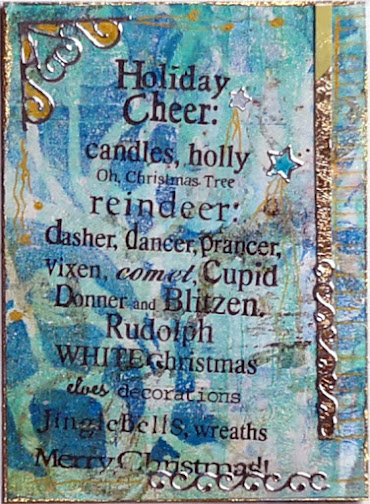 Holiday
Cheer:
candles, holly
Oh, Christmas Tree
reindeer:
dasher, dancer, prancer,
Vixen, comet, Cupid
Donner and Blitzen.
Rudolph
WHITE Christmas
elves decorations
Jinglebells, wreaths
Merry Christmas!